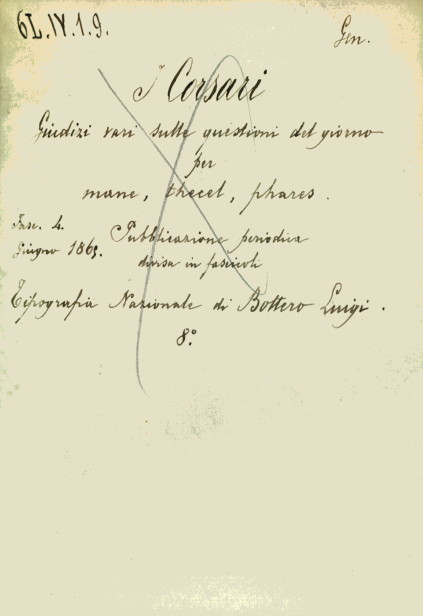 6L.IV.1.9.
Gen.
I Corsari
Giudizi vari sulle questioni del giorno
per
mane, thecel, phares.
Fasc. 4.
Giugno 1865.
Pubblicazione periodica
divisa in fascicoli
Tipografia Nazionale di Bottero Luigi.
8.°